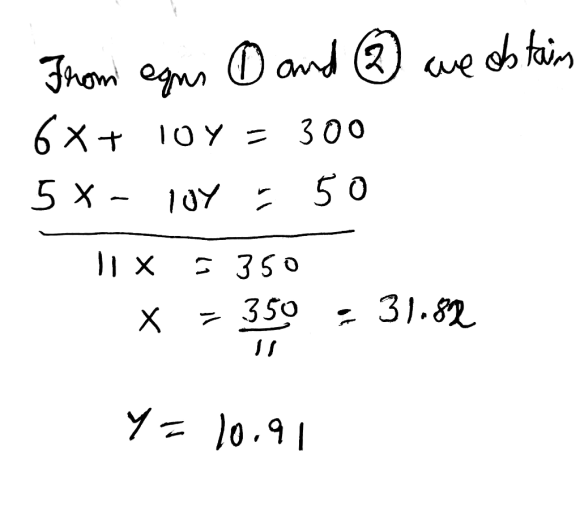 From eqns ① and ② we obtain
6X + 10Y = 300
5X - 10Y = 50
11X = 350
X = 350/11 = 31.82
Y = 10.91